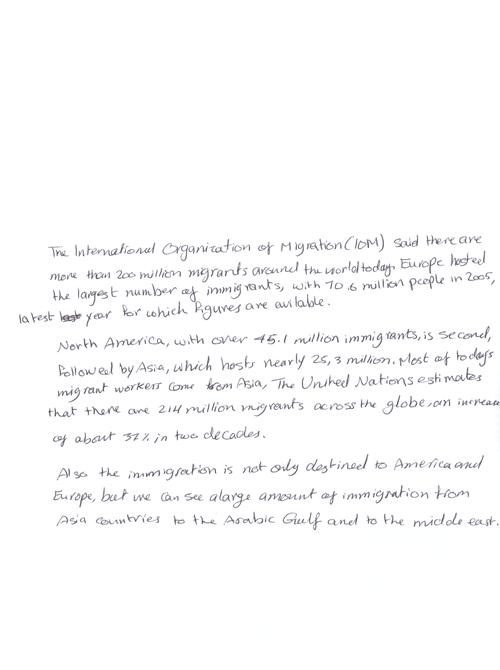 The International Organization of Migration (IOM) said there are
more than 200 million migrants around the world today. Europe hosted
the largest number of immigrants, with 70.6 million people in 2005,
latest year for which figures are avilable.
North America, with over 45.1 million immigrants, is second,
followed by Asia, which hosts nearly 25,3 million. Most of todays
migrant workers come from Asia, The United Nations estimates
that there are 214 million migrants across the globe, an increase
of about 37% in two decades.
Also the immigration is not only destined to America and
Europe, but we can see a large amount of immigration from
Asia countries to the Arabic Gulf and to the middle east.